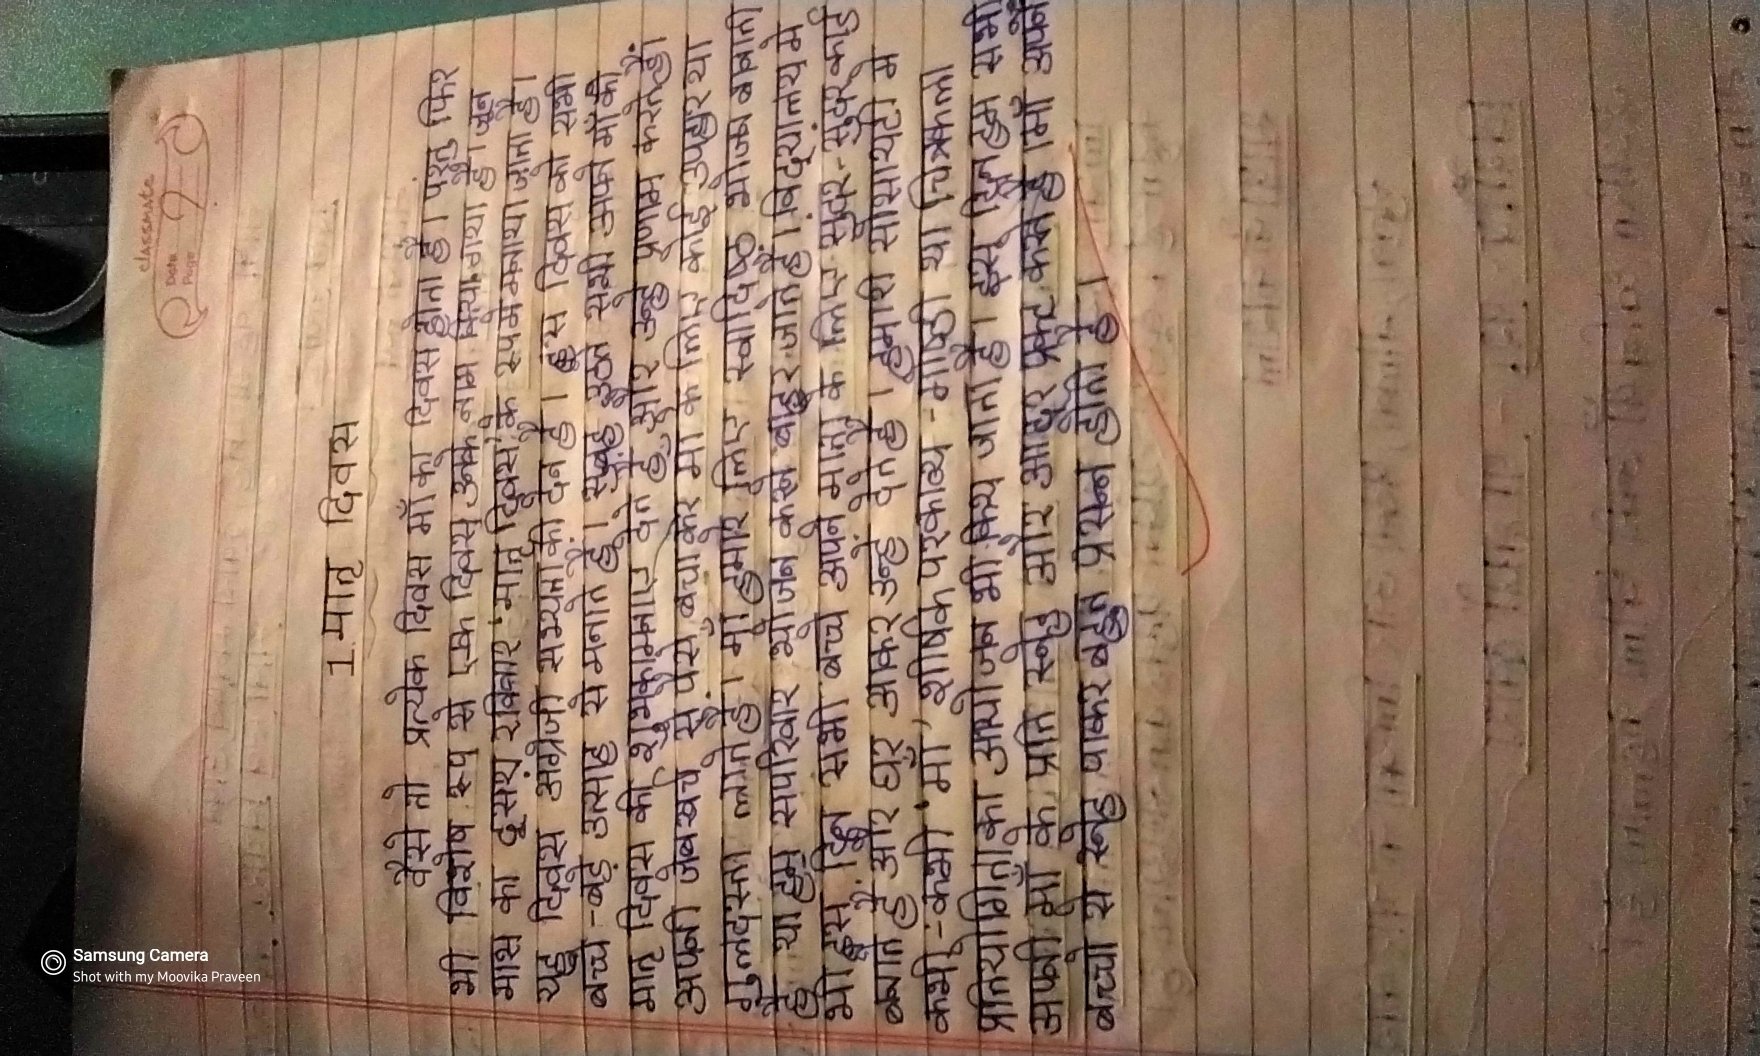 classmate
Date
Page
1. मातृ दिवस
वैसे तो प्रत्येक दिवस माँ का दिवस होता है। परंतु फिर
भी विशेष रूप से एक दिवस उनके नाम किया गया है। जून
मास का दूसरा रविवार 'मातृ दिवस' के रूप में मनाया जाता है।
यह दिवस अंग्रेजी सभ्यता की देन है। इस दिवस को सभी
बच्चे - बड़े उत्साह से मनाते है। सुबह उठते सभी अपनी माँ को
मातृ दिवस की शुभकामनाएं देते है और उन्हे प्रणाम करते है।
अपनी जेबखर्च से पैसे बचाकर माँ के लिए कोई उपहार या
गुलदस्ता लाते है। माँ हमारे लिए स्वादिष्ठ भोजन बनाती
है या हम सपरिवार भोजन करने बाहर जाते है। विद्यालय मे
भी इस दिन सभी बच्चे अपने माता के लिए सुंदर-सुंदर कार्ड
बनाते है और घर आकर उन्हे देते है। हमारी सोसायटी मे
कभी-कभी 'माँ' शीर्षक पर काव्य-गोष्ठी या चित्रकला
प्रतियोगिता का आयोजन भी किया जाता है। इस दिन हम सभी
अपनी माँ के प्रति स्नेह और आदर प्रकट करते है। माँ अपने
बच्चो से स्नेह पाकर बहुत प्रसन्न होती है।
Samsung Camera
Shot with my Moovika Praveen